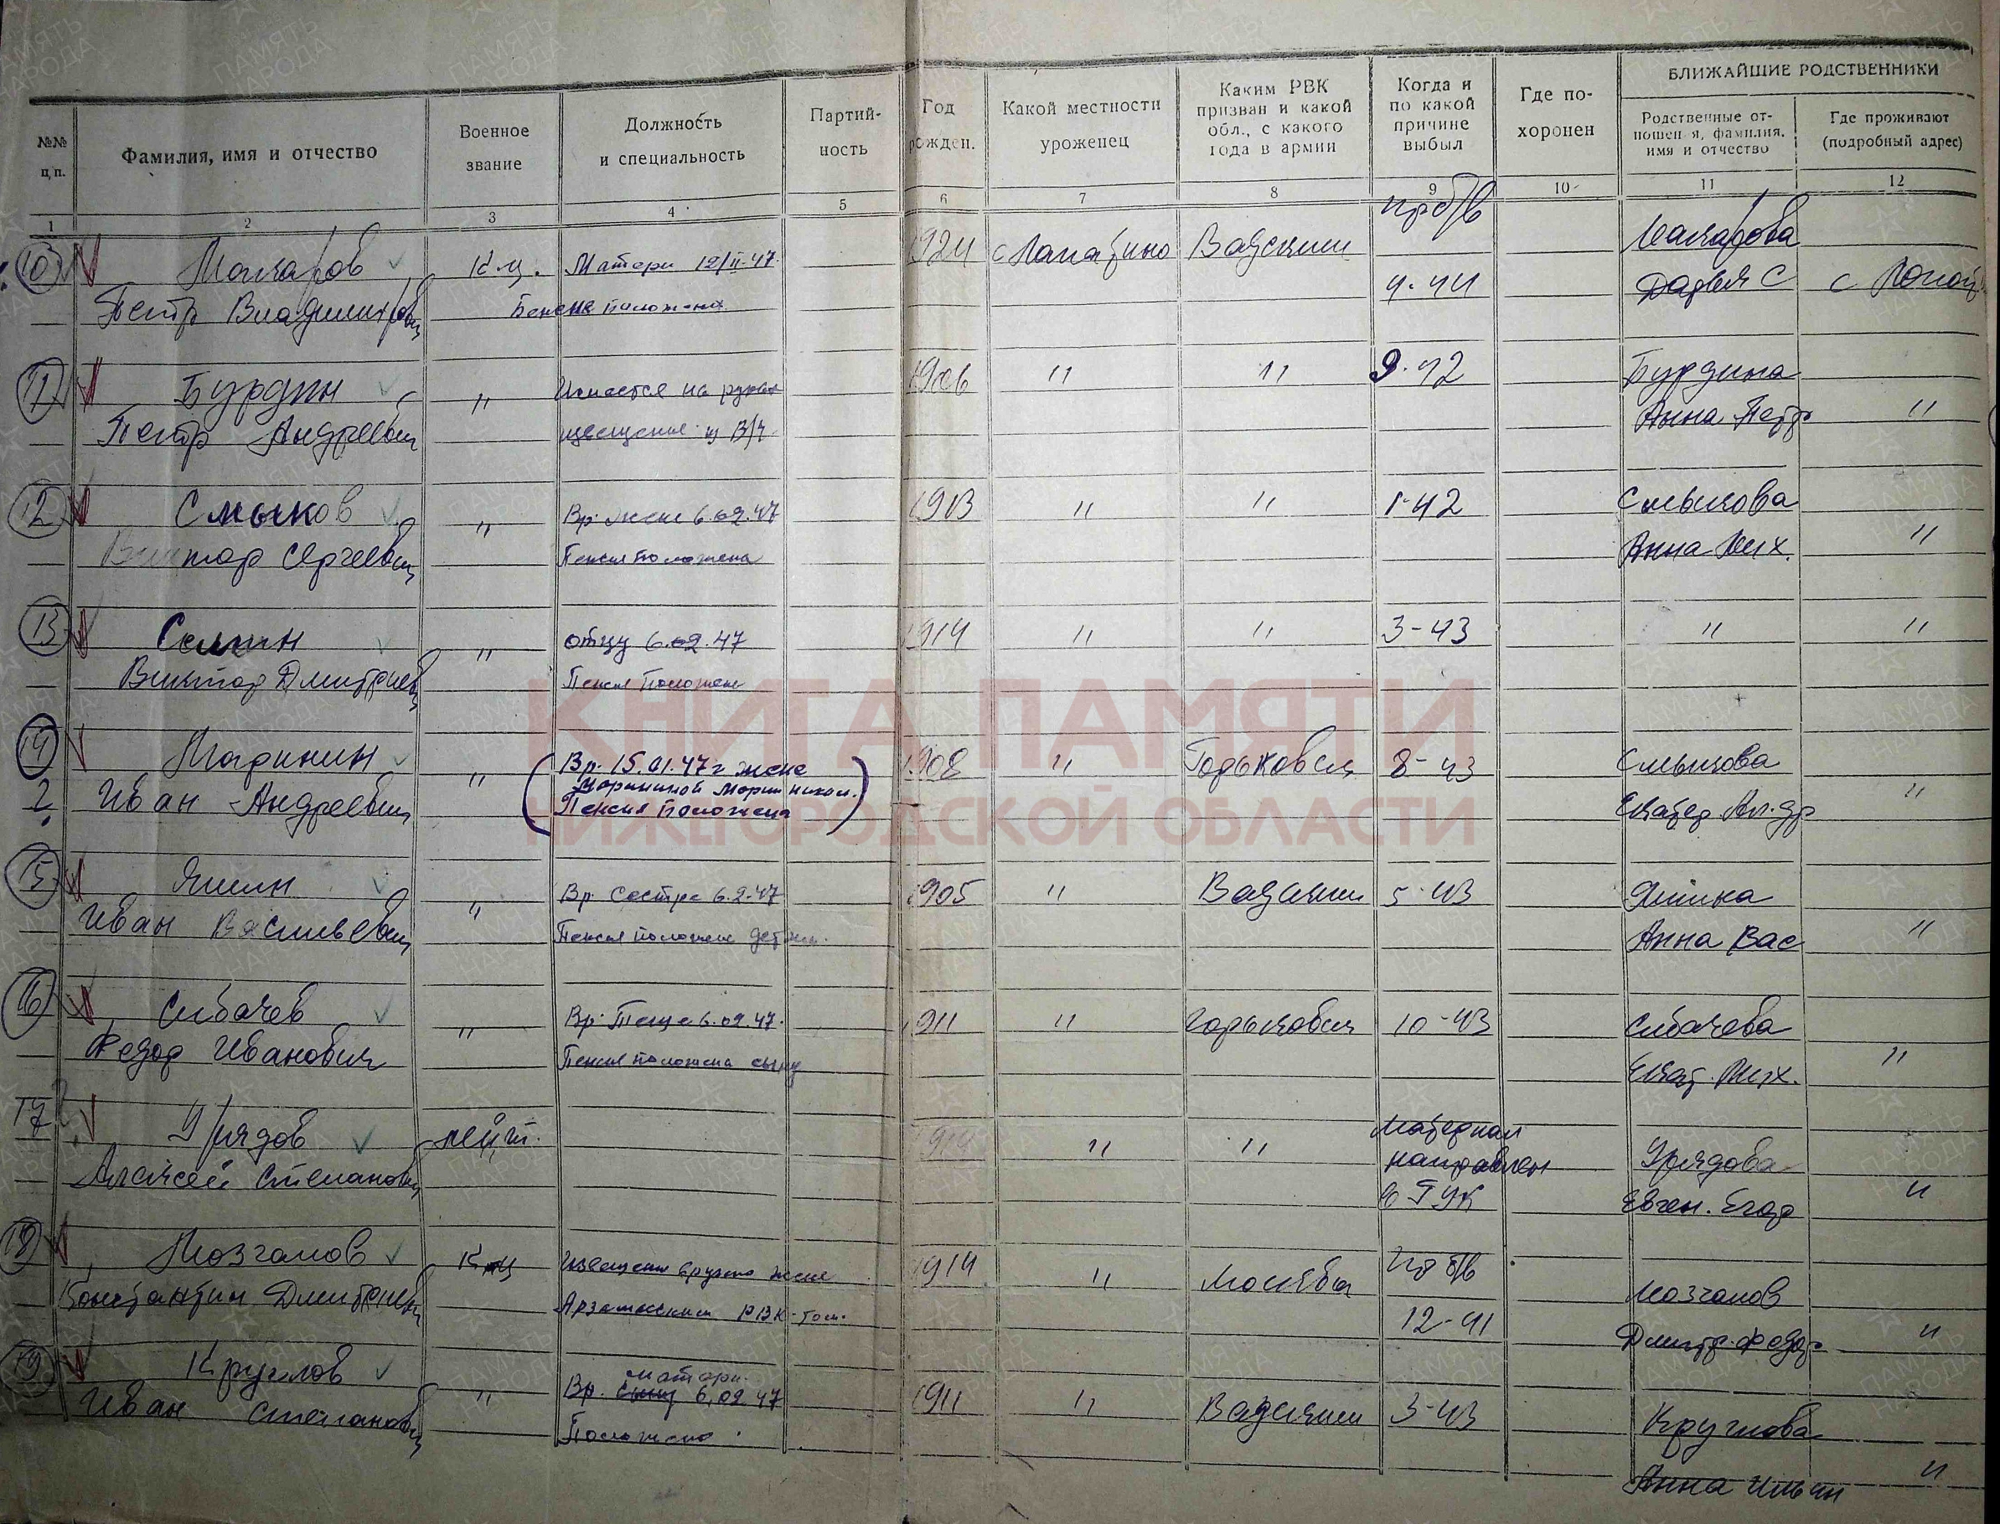 БЛИЖАЙШИЕ РОДСТВЕННИКИ
№№ п, п.
Фамилия, имя и отчество
Военное звание
Должность и специальность
Партий-ность
Год рожден.
Какой местности уроженец
Каким РВК призван и какой обл., с какого года в армии
Когда и по какой причине выбыл
Где по-хоронен
Родственные от-ношен я, фамилия, имя и отчество
Где проживают (подробный адрес)
1 2 3 4 5 6 7 8 9 10 11 12
пр б/в
10 Макаров К-ц. Матери 12/II-47 1924 с Лапатино Вадским Макарова
Петр Владимирович Пенсия положена 4-44 Дарья С с
11 Бурдин " 1906 " " 9-42 Бурдина
Петр Андреевич извещение из В/ч Анна Петр "
12 Смыков " Вр. жене 6.02.47 1913 " " 1-42 Смыкова
Виктор Сергеевич Пенсия положена Анна Мих. "
13 Селин " отцу 6.02.47 1914 " " 3-43 " "
Виктор Дмитриевич Пенсия положена
КНИГА ПАМЯТИ
НИЖЕГОРОДСКОЙ ОБЛАСТИ
14 " Вр. 15.01.47 г жене 1908 " Горьковск 8-43 Смыкова
2 Иван Андреевич Пенсия положена Екатер. Ал-др "
15 Яшин " Вр. Сестре 6.2.47 1905 " Вадским 5-43 Яшина
Иван Васильевич Пенсия положена детям. Анна Вас "
16 Сибачев " Вр. Теще 6.02.47. 1911 " Горьковск 10-43 Сибачева
Федор Иванович Пенсия положена сыну Екат. Мих. "
17 Урядов лейт. 1914 " " Материал
направлен Урядова
Алексей Степанович в ГУК Евген. Егор "
18 Мозгалов К-ц извещение вручено жене 1914 " Москвы пр б/в Мозгалов
Константин Дмитриевич Арзамасским РВК-том. 12-41 Дмитр. Федор "
19 Круглов " Вр. сыну матери. 6.02.47 1911 " Вадским 3-43 Круглова
Иван Степанович Положена Анна Ильин "